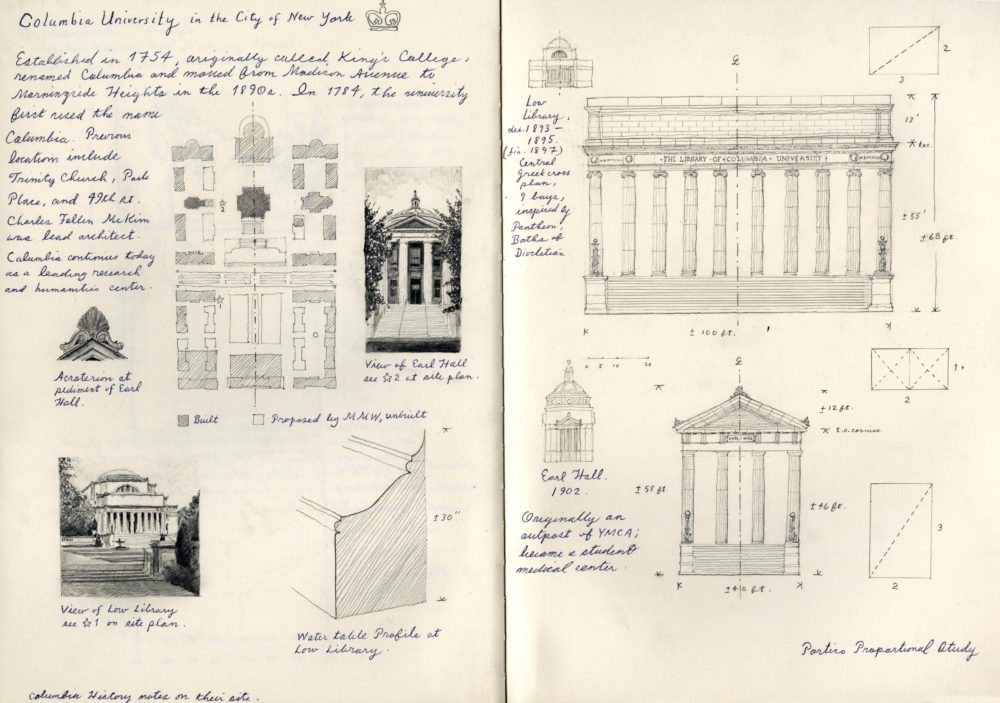 Columbia University in the City of New York
Established in 1754, originally called King's College,
renamed Columbia and moved from Madison Avenue to
Morningside Heights in the 1890s. In 1784, the university
first used the name
Columbia. Previous
locations include
Trinity Church, Park
Place, and 49th st.
Charles Follen McKim
was lead architect.
Columbia continues today
as a leading research
and humanities center.
Acroterion at
pediment of Earl
Hall.
View of Earl Hall
see ☆2 at site plan.
Built
Proposed by MMW, unbuilt
View of Low Library
see ☆1 on site plan.
± 30"
Water table Profile at
Low Library.
Columbia History notes on their site.
Low
Library,
des. 1893 –
1895.
(fin. 1897)
Central
Greek cross
plan,
9 bays,
inspired by
Pantheon,
Baths of
Diocletian
℄
THE LIBRARY OF COLUMBIA UNIVERSITY
2
3
13'
±55'
±68 ft.
± 100 ft.
0 5 10 20
℄
1+
2
Earl Hall.
1902.
Originally an
outpost of YMCA;
became a student
medical center.
EARL HALL
±12 ft.
t.o. cornice
±58 ft.
±46 ft.
±40 ft.
3
2
Portico Proportional Study